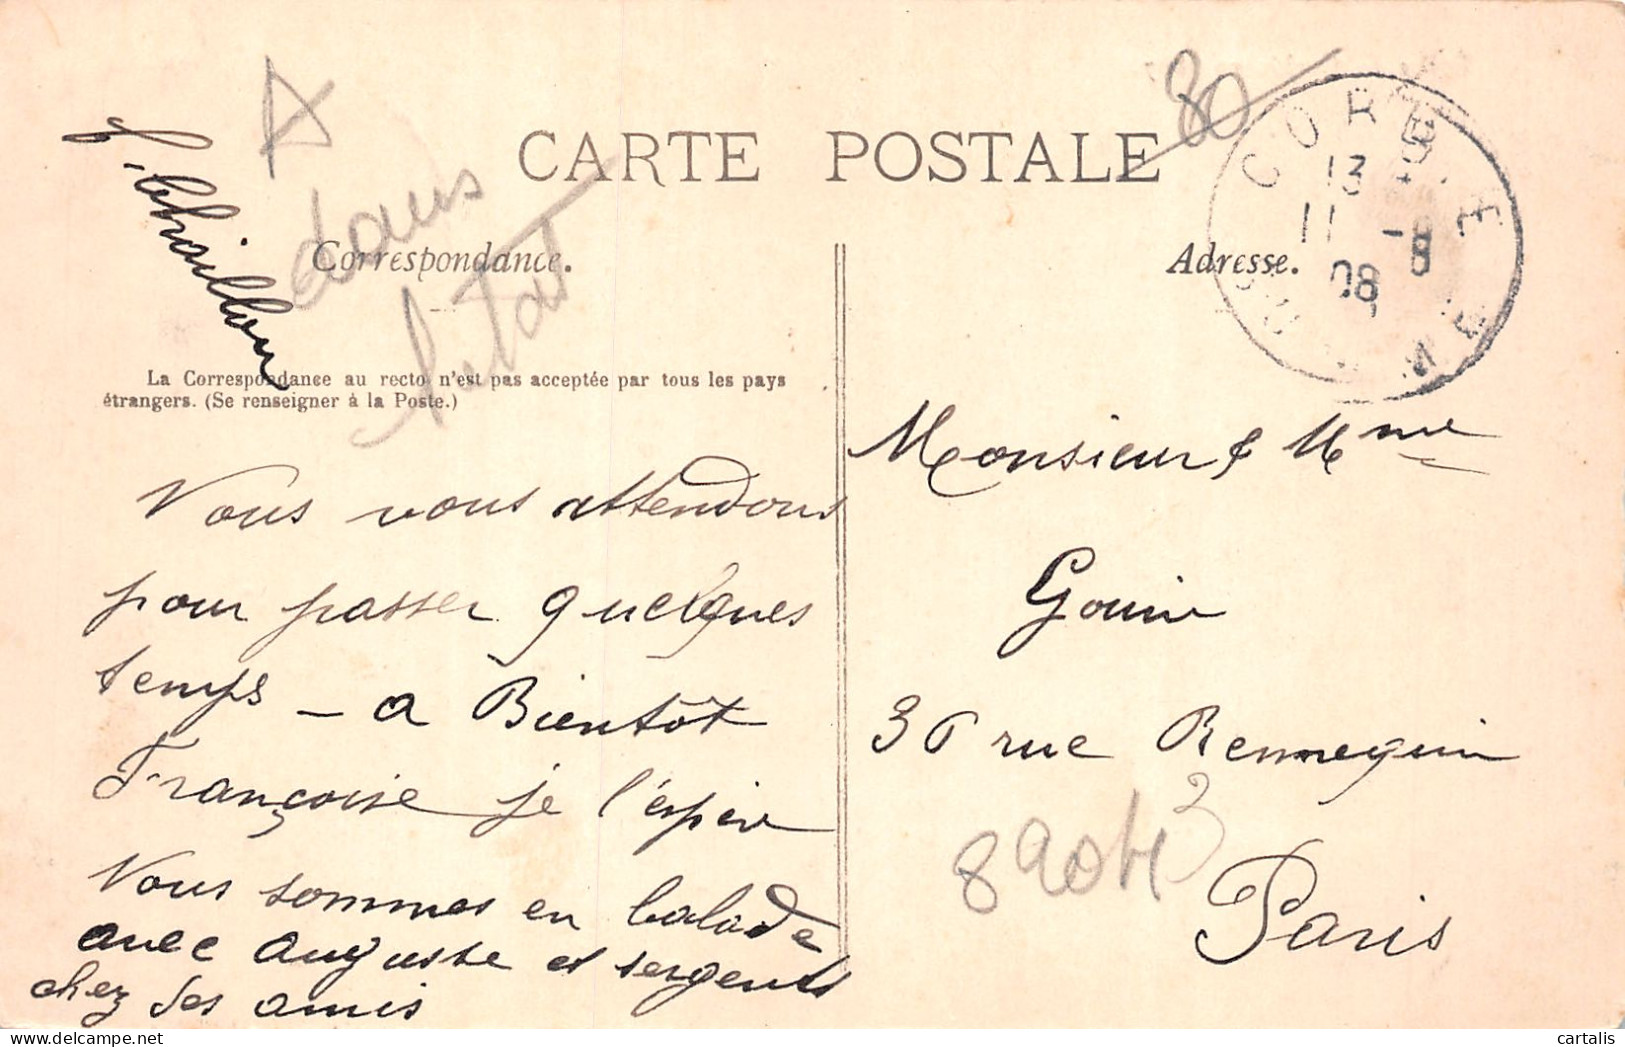 80
CARTE POSTALE
CORBIE
13
11 -8
08
SOMME
dans
l'état
Correspondance.
Adresse.
La Correspondance au recto n'est pas acceptée par tous les pays
étrangers. (Se renseigner à la Poste.)
Monsieur & Mme
Gouin
36 rue Rennequin
Paris
Nous vous attendons
pour passer quelques
temps _ a Bientôt
Françoise je l'espère
Nous sommes en balade
avec Auguste et sergents
chez des amis
cartalis